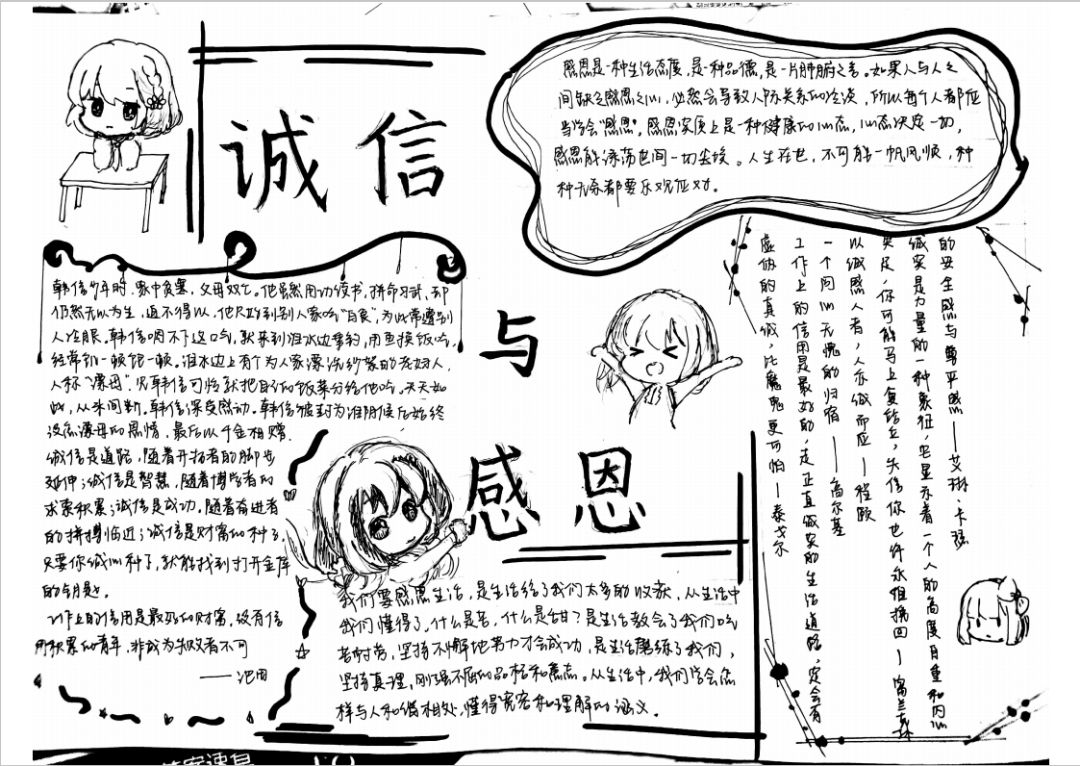 诚信
与
感恩
感恩是一种生活态度,是一种品德,是一片肺腑之言。如果人与人之
间缺乏感恩之心,必然会导致人际关系的冷淡,所以每个人都应
当学会"感恩"。感恩实质上是一种健康的心态,心态决定一切,
感恩能涤荡世间一切尘埃。人生在世,不可能一帆风顺,种
种无奈都要乐观应对。
韩信少年时,家中贫寒,父母双亡。他虽然用功读书,拼命习武,却
仍然无以为生,迫不得以,他只好到别人家吃"白食",为此常遭别
人冷眼。韩信咽不下这口气,就来到淮水边垂钓,用鱼换饭吃,
经常饥一顿饱一顿。淮水边上有个为人家漂洗纱絮的老妇人,
人称"漂母",见韩信可怜就把自己的饭菜分给他吃。天天如
此,从未间断。韩信深受感动。韩信被封为淮阴侯后始终
没忘漂母的恩情,最后以千金相赠。
诚信是道路,随着开拓者的脚步
延伸;诚信是智慧,随着博学者的
求索积累;诚信是成功,随着奋进者
的拼搏临近;诚信是财富的种子,
只要你诚心种下,就能找到打开金库
的钥匙。
工作上的信用是最好的财富,没有信
用积累的青年,非成为失败者不可
——池田
我们要感恩生活,是生活给了我们太多的收获,从生活中
我们懂得了,什么是苦,什么是甜?是生活教会了我们吃
苦耐劳,坚持不懈地努力才会成功,是生活磨练了我们,
坚持真理,刚强不屈的品格和意志。从生活中,我们学会怎
样与人和谐相处,懂得宽容和理解的涵义。
的安全感与尊严感——艾琳·卡瑟
诚实是力量的一种象征,它显示着一个人的高度自重和内心
失足,你可能马上复站立,失信,你也许永难挽回——富兰克林
以诚感人者,人亦诚而应——程颐
一个问心无愧的归宿——高尔基
工作上的信用是最好的,走正直诚实的生活道路,定会有
虚伪的真诚,比魔鬼更可怕——泰戈尔